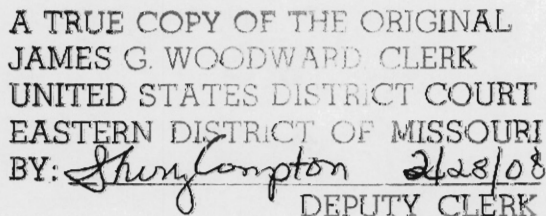 A TRUE COPY OF THE ORIGINAL
JAMES G. WOODWARD CLERK
UNITED STATES DISTRICT COURT
EASTERN DISTRICT OF MISSOURI
BY: Compton 2/28/08
DEPUTY CLERK